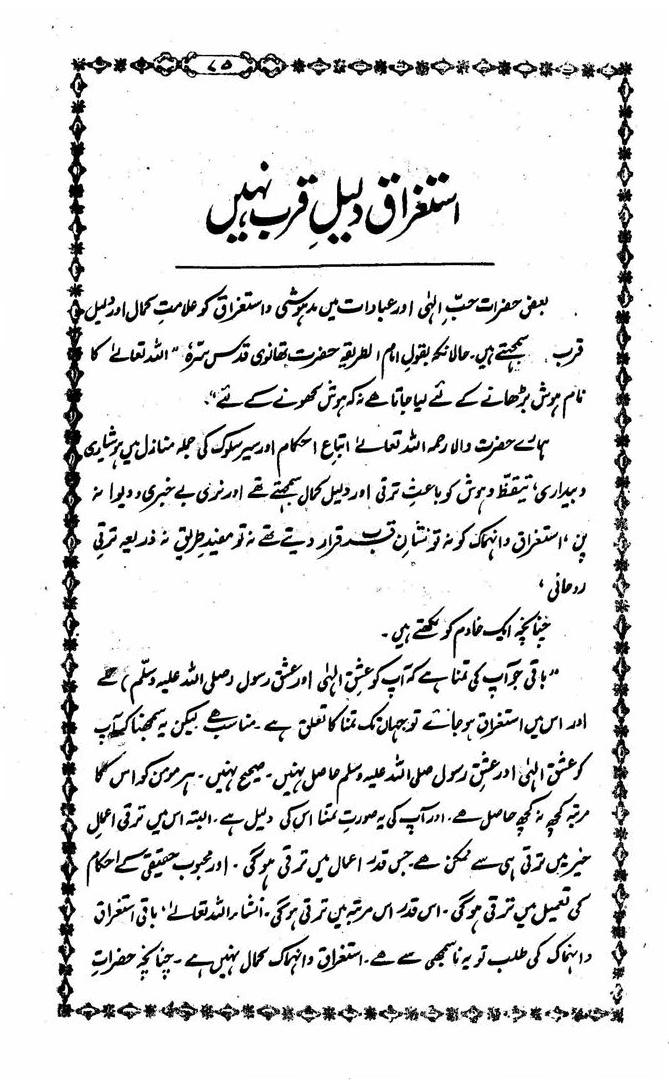 ۷۵
استغراق دلیلِ قرب نہیں
بعض حضرات حبّ الٰہی اور عبادات میں مدہوشی و استغراق کو علامتِ کمال اور دلیل
قرب سمجھتے ہیں۔ حالانکہ بقول امام الطریقہ حضرت تھانوی قدس سرہٗ "اللہ تعالےٰ کا
نام ہوش بڑھانے کے لئے لیا جاتا ہے نہ کہ ہوش کھونے کے لئے"۔
ہمارے حضرت والا رحمہ اللہ تعالےٰ اتباع احکام اور سیر سلوک کی جملہ منازل میں ہوشیاری
و بیداری، تیقظ و ہوش کو باعثِ ترقی اور دلیل کمال سمجھتے تھے اور نری بے خبری و دیوانہ
پن، استغراق و انہماک کو نہ تو نشانِ قرب قرار دیتے تھے نہ تو مفید طریق نہ ذریعہ ترقی
روحانی،
چنانچہ ایک خادم کو لکھتے ہیں۔
"باقی جو آپ کی تمنا ہے کہ آپ کو عشقِ الٰہی اور عشق رسول (صلی اللہ علیہ وسلّم) ملے
اور اس میں استغراق ہو جائے تو جہاں تک تمنا کا تعلق ہے۔ مناسب ہے لیکن یہ سمجھنا کہ آپ
کو عشق الٰہی اور عشقِ رسول صلی اللہ علیہ وسلم حاصل نہیں۔ صحیح نہیں۔ ہر مومن کو اس کا
مرتبہ کچھ نہ کچھ حاصل ہے۔ اور آپ کی یہ صورتِ تمنا اس کی دلیل ہے۔ البتہ اس میں ترقی اعمال
خیر میں ترقی ہی سے ممکن ہے جس قدر اعمال میں ترقی ہوگی۔ اور محبوب حقیقی کے احکام
کی تعمیل میں ترقی ہوگی۔ اس قدر اس مرتبہ میں ترقی ہوگی۔ انشاء اللہ تعالےٰ، باقی استغراق
و انہماک کی طلب تو یہ نا سمجھی سے ہے۔ استغراق و انہماک کمال نہیں ہے۔ چنانچہ حضراتِ